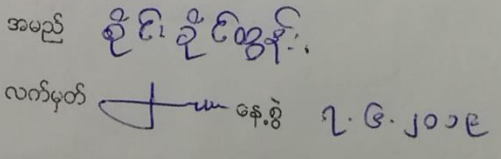 အမည် စိုင်းခိုင်ထွန်း
လက်မှတ် နေ့စွဲ ၇.၆.၂၀၁၉